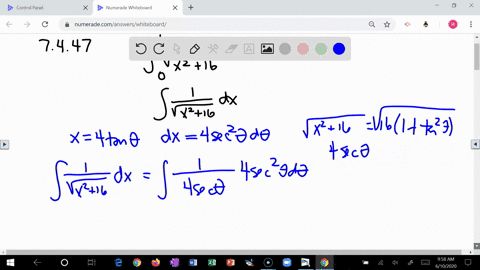 Control Panel
Numerade Whiteboard
numerade.com/answers/whiteboard/
7.4.47
∫₀ √x²+16
∫ 1/√x²+16 dx
x = 4tanθ dx = 4sec²θdθ
√x²+16 = √16(1+tan²θ)
4secθ
∫ 1/√x²+16 dx = ∫ 1/4secθ 4sec²θdθ
9:58 AM
6/10/2020